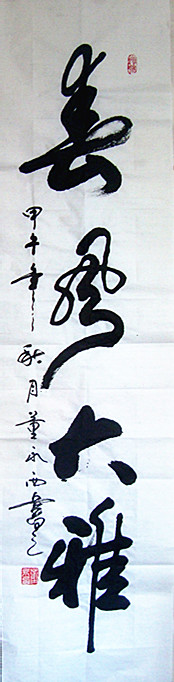 春风大雅
甲午年秋月董永西书之